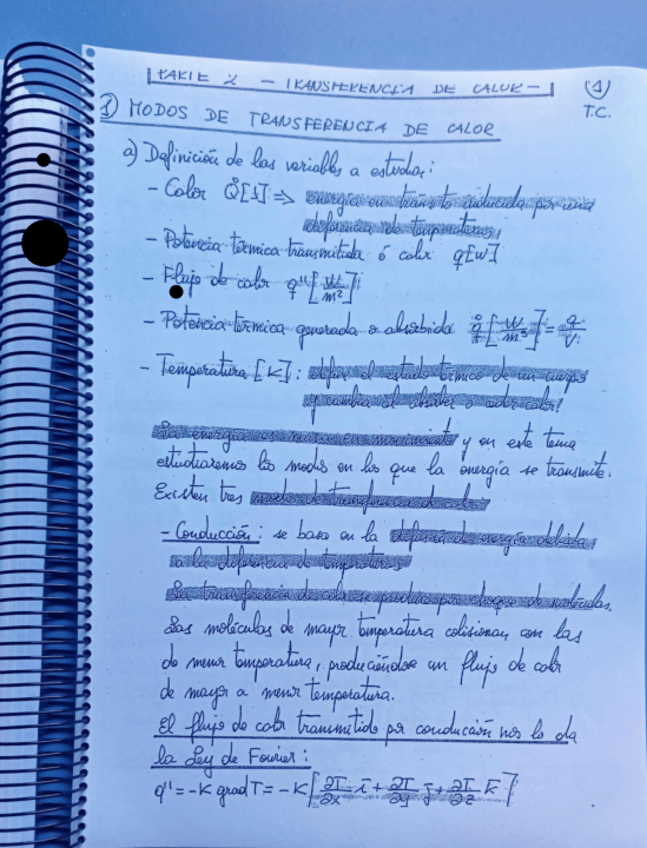 PARTE 2 - TRANSFERENCIA DE CALOR -
①
T.C.
1) MODOS DE TRANSFERENCIA DE CALOR
a) Definición de las variables a estudiar:
- Calor Q̊[J] => energía en tránsito motivada por una
diferencia de temperaturas,
- Potencia térmica transmitida ó calor q[W]
- Flujo de calor q'' [W/m²]
- Potencia térmica generada o absorbida q̊ [W/m³] = q/V
- Temperatura [K]: define el estado térmico de un cuerpo
y cambia al absorber o ceder calor!
La energía es materia en movimiento y en este tema
estudiaremos los modos en los que la energía se transmite.
Existen tres modos de transferencia de calor
- Conducción: se basa en la de energía debida
a la diferencia de temperaturas
La transferencia de calor se produce por choque de moléculas.
Las moléculas de mayor temperatura colisionan con las
de menor temperatura, produciéndose un flujo de calor
de mayor a menor temperatura.
El flujo de calor transmitido por conducción nos lo da
la Ley de Fourier:
q'' = -K grad T = -K [∂T/∂x i + ∂T/∂y j + ∂T/∂z k]